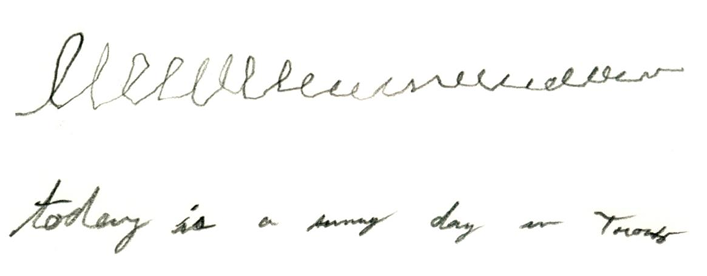 today is a sunny day in Toronto